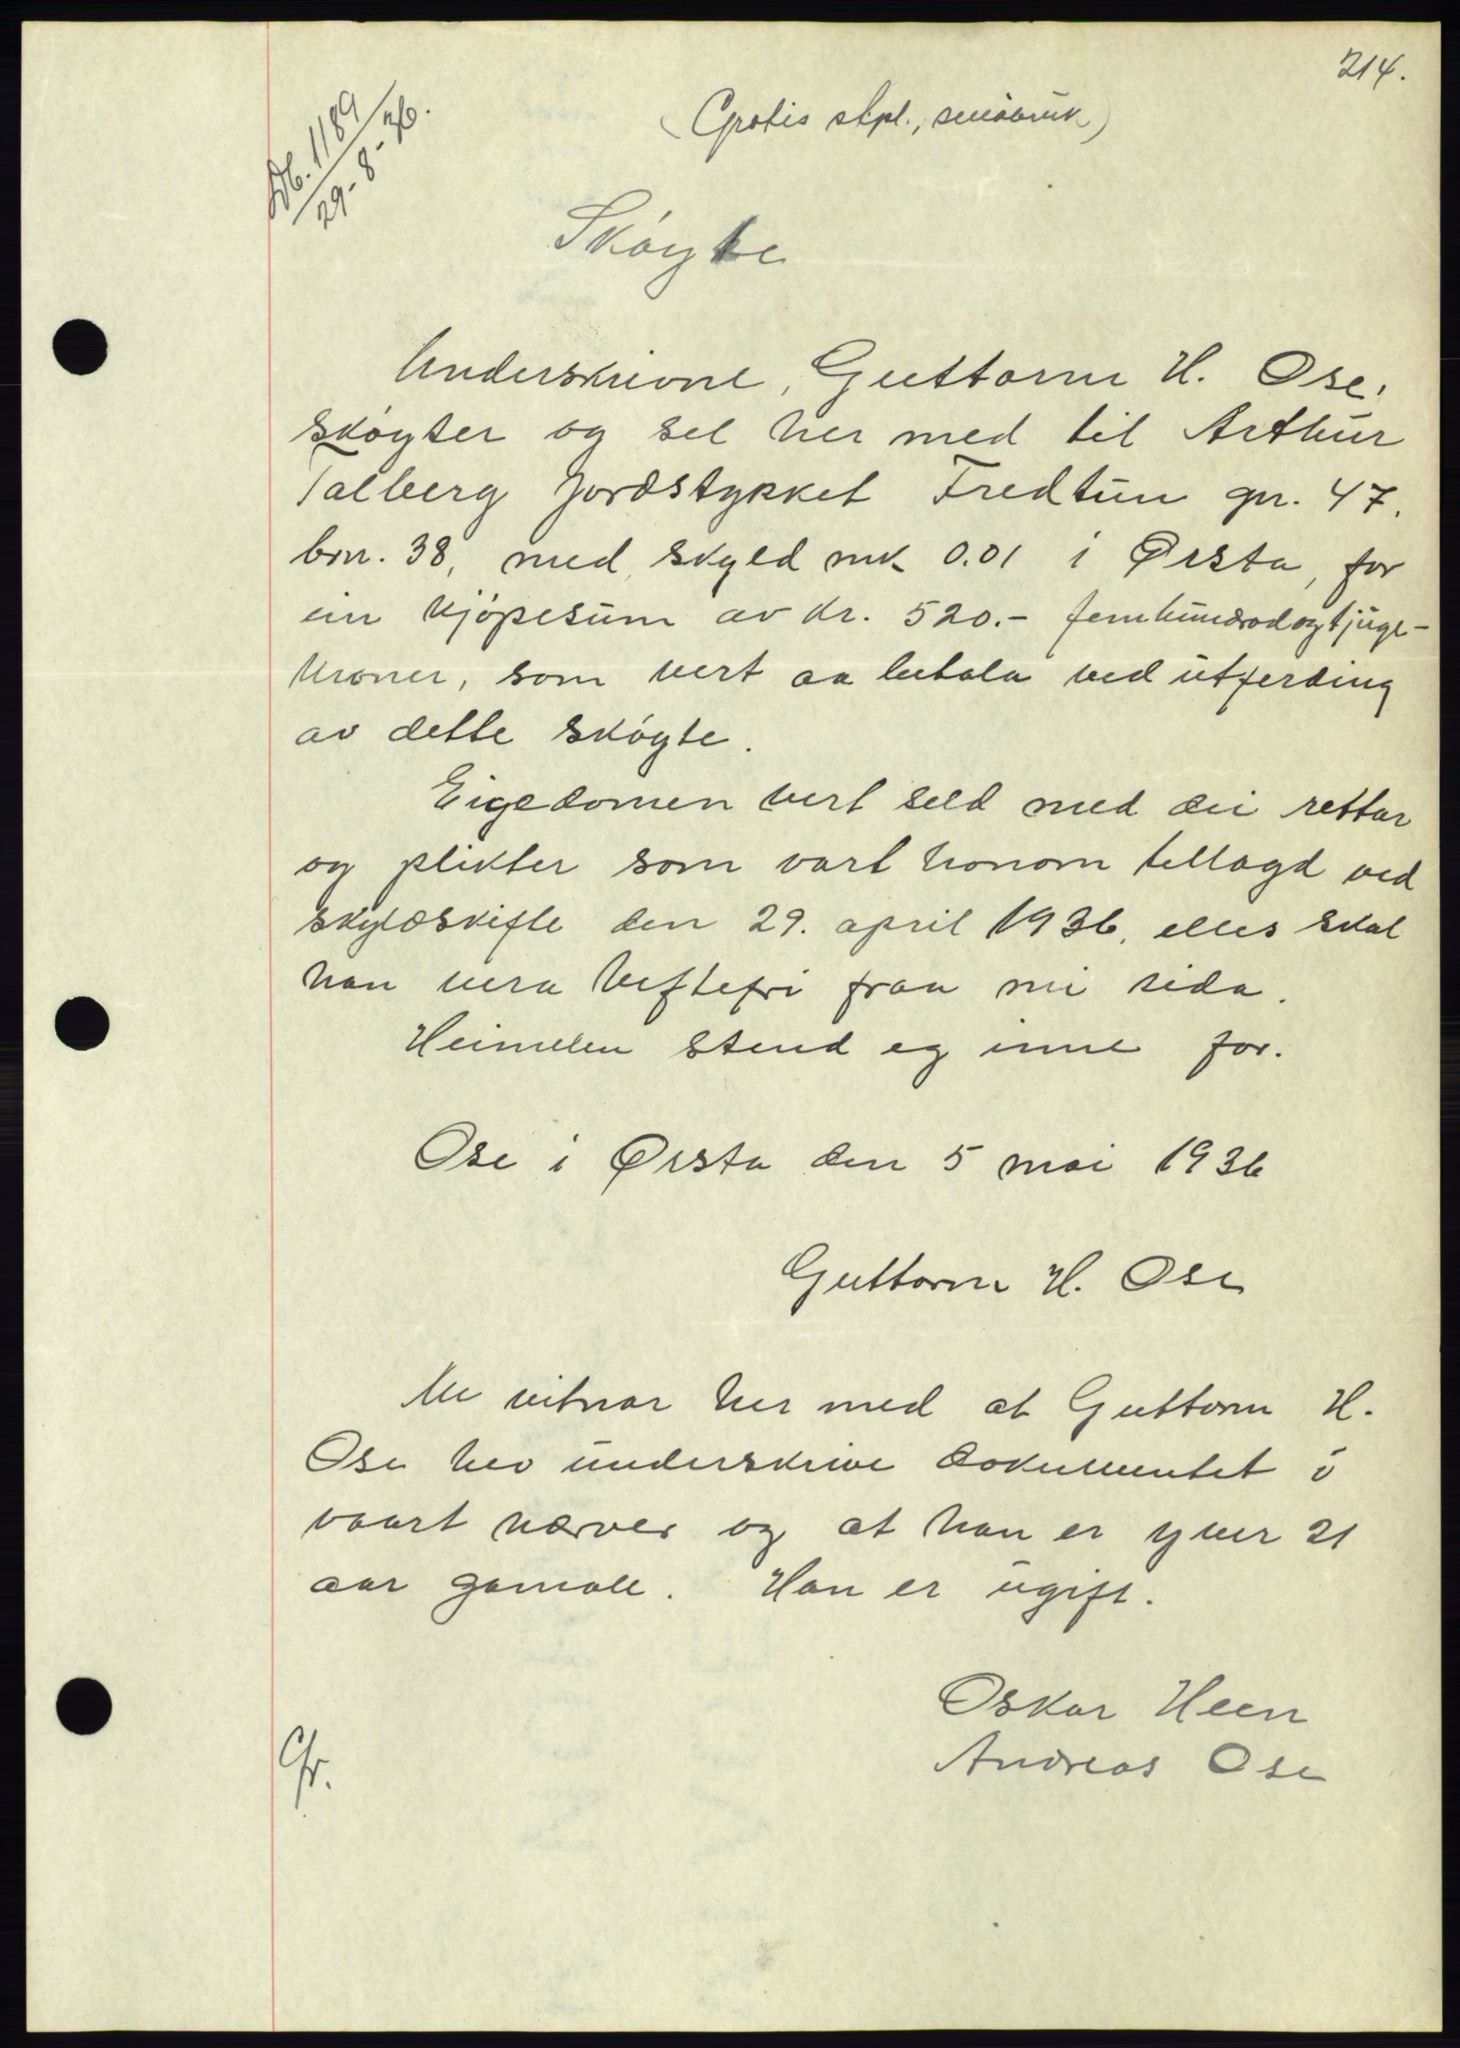 214.
Db. 1189
29-8-36.
(Gratis stpl., småbruk)
Skøyte
Underskrivne, Guttorm H. Ose,
skøyter og sel her med til Arthur
Talberg jordstykket Fredtun gr. 47,
brn. 38, med skyld mk 0.01 i Ørsta, for
ein kjøpesum av kr. 520.- femhundradogtjuge-
kroner, som vert aa betala ved utferding
av dette skøyte.
Eigedomen vert seld med dei rettar
og plikter som vart honom tillagd ved
skyldskifte den 29. april 1936, elles skal
han vera heftefri fraa mi sida.
Heimelen stend eg inne for.
Ose i Ørsta den 5 mai 1936
Guttorm H. Ose
Me vitnar her med at Guttorm H.
Ose hev underskrive dokumentet i
vaart nærver og at han er yver 21
aar gamall. Han er ugift.
Oskar Heen
Andreas Ose
Gr.